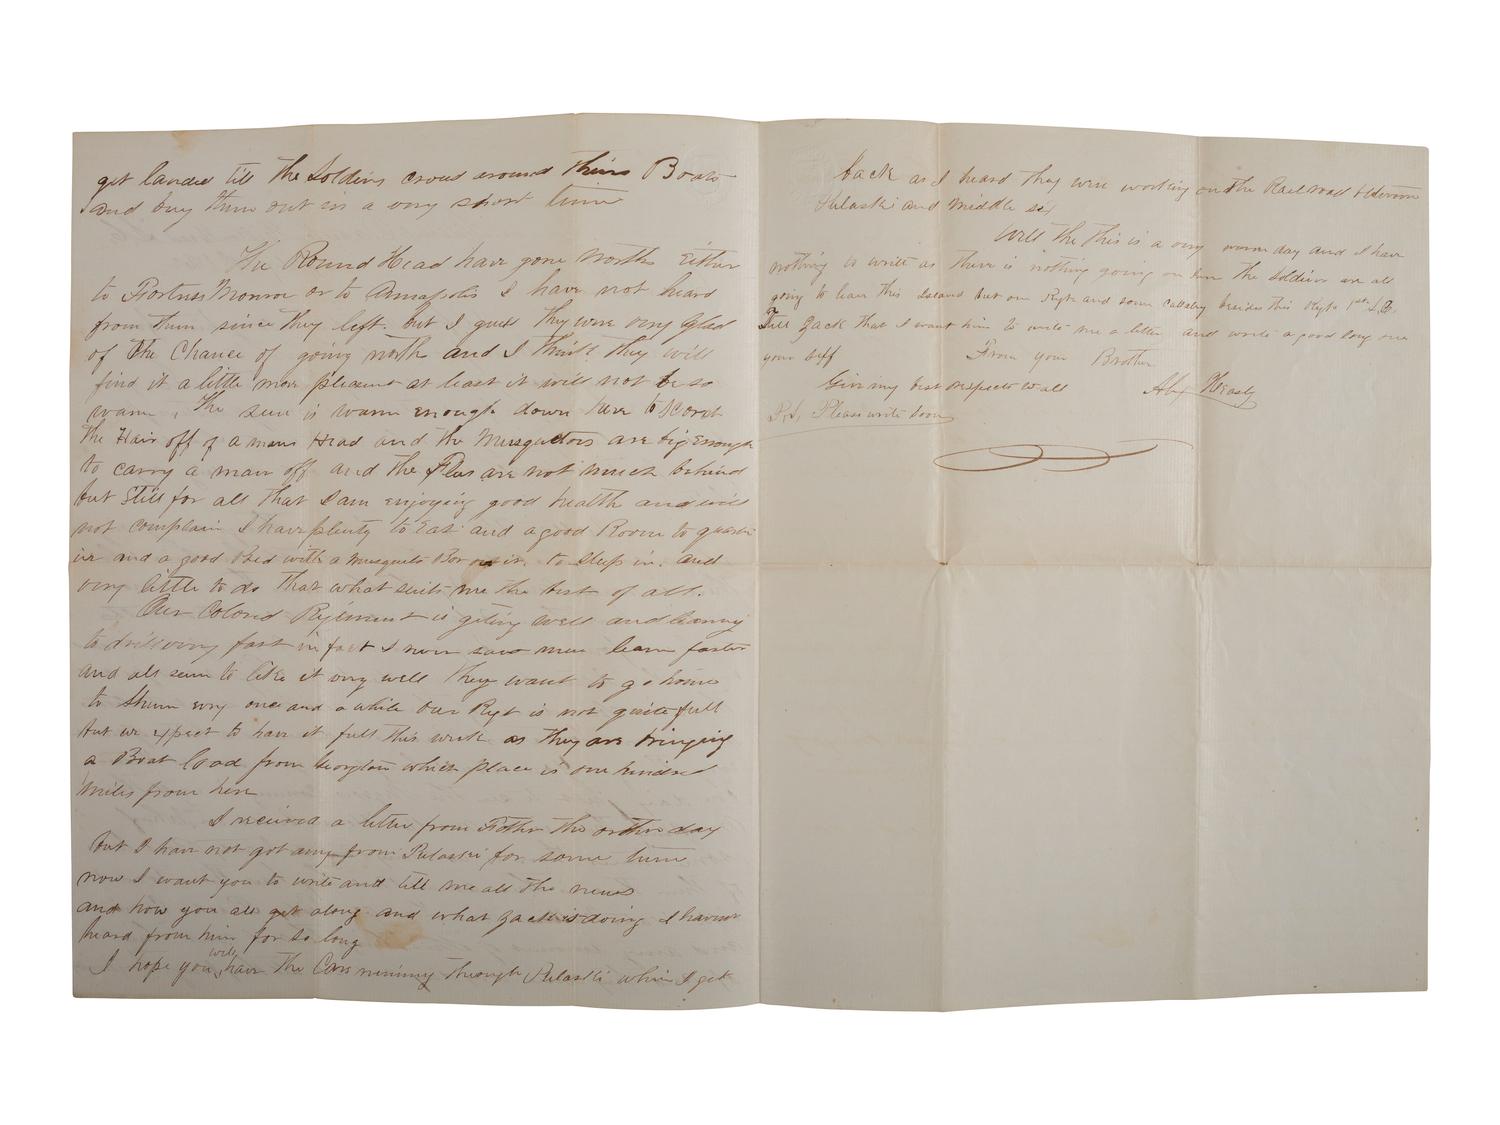 get landed till the Soldiers croud around thire Boats
and buy them out in a very short time
The Round Head have gone North Either
to Fortress Monroe or to Annapolis I have not heard
from them since they left. but I guess they were very glad
of the Chance of going north and I think they will
find it a little more pleasant at least it will not be so
warm, The sun is warm enough down here to scorch
the Hair off of a mans Head and the Musquetors are big Enough
to carry a man off and the Fleas are not much behind
but Still for all that I am enjoying good health and will
not complain I have plenty to Eat and a good Room to quarter
in and a good Bed with a Musqueto Bar over it. to sleep in. and
very little to do that what suits me the best of all.
Our Colored Regiment is geting well and learning
to drill very fast in fact I never saw men learn faster
and all seem to like it very well They want to go home
to thire every once and a while Our Regt is not quite full
but we expect to have it full this week as they are bringing
a Boat load from Georgton which place is one hundred
miles from here
I received a letter from Father the other day
but I have not got any from Pulaski for some time
now I want you to write and tell me all the news
and how you all get along and what Zack is doing I have not
heard from him for so long
I hope you will have the Cars running through Pulaski when I get
back as I heard they were working on the Rail road between
Pulaski and Middle sex
Well the this is a very warm day and I have
nothing to write as there is nothing going on here The Soldiers are all
going to leave this Island but our Regt and some Cavalry besides this Regt 1st S.C.
Tell Zack that I want him to write me a letter and write a good long one
your self
From your Brother
Give my best respects to all
P.S. Please write soon